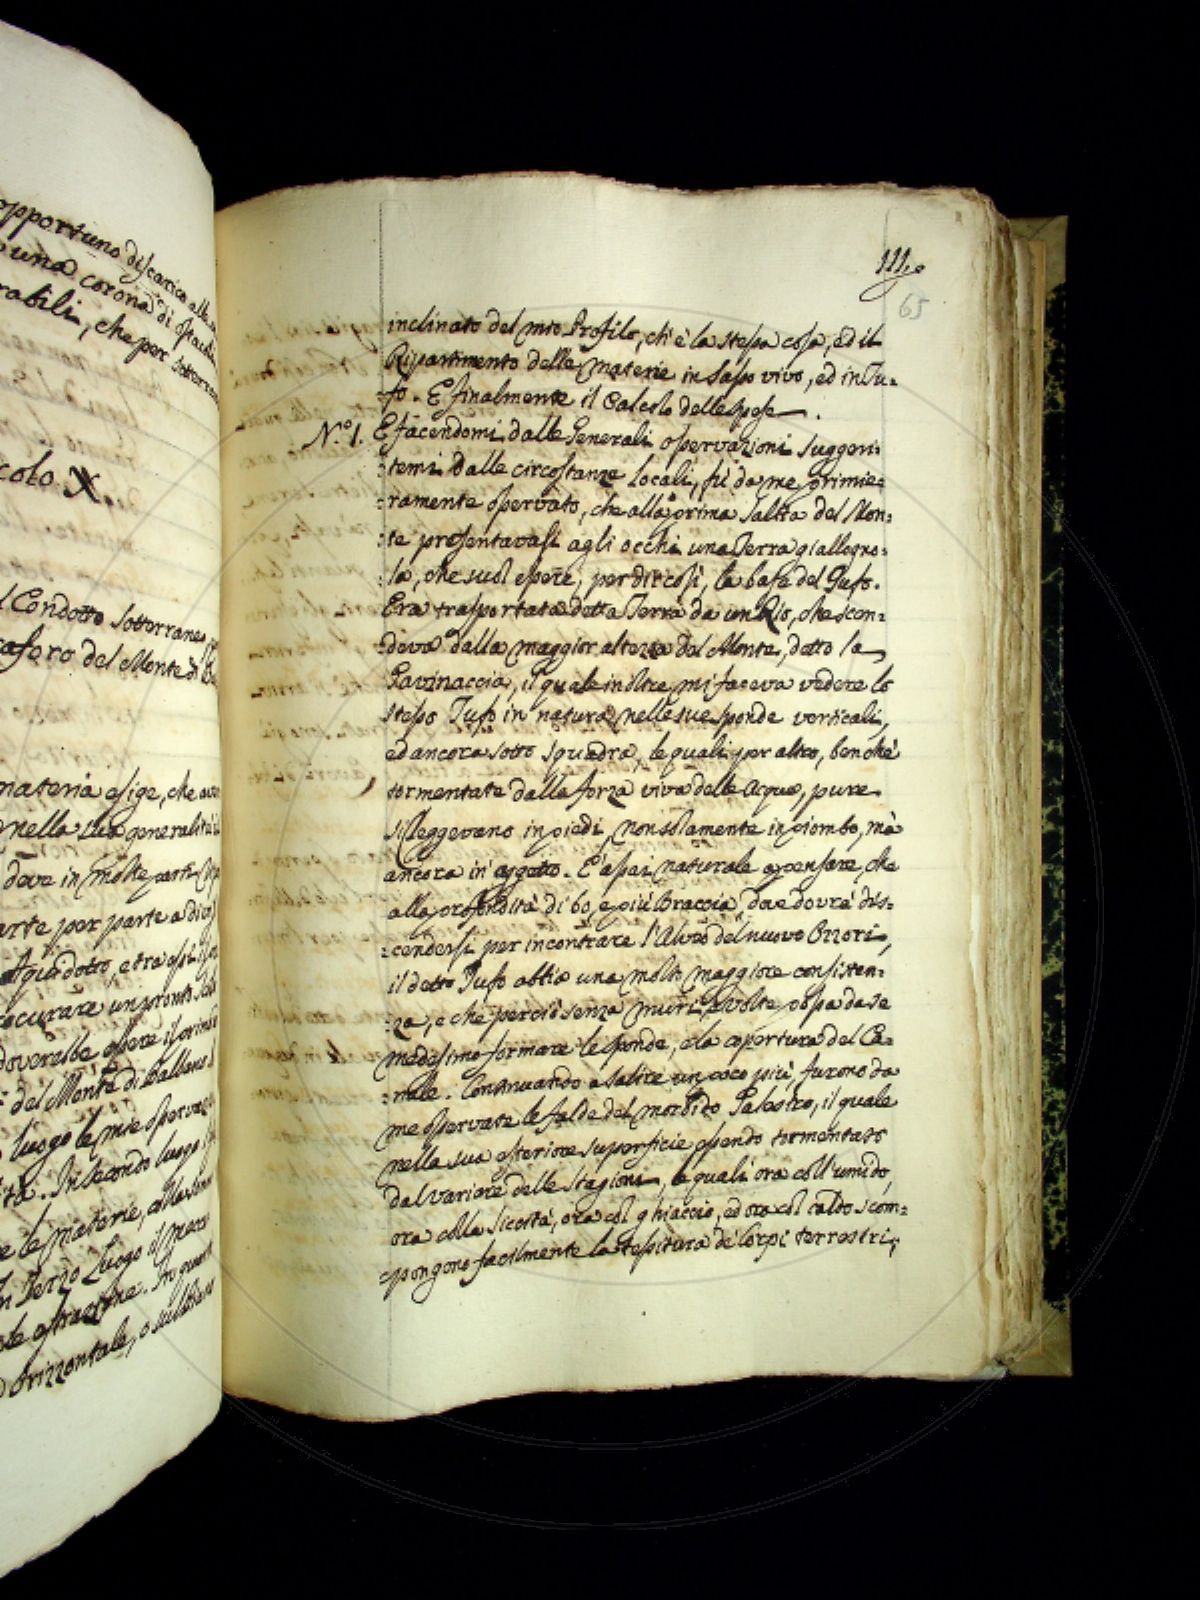 opportuno discarico alle
una corona di ostacoli
rabili, che per sotterra
colo X.
l Condotto Sotterraneo
aforo del Monte di B
materia esige, che
nella sua generalità
dove in molte parti
arte per parte a di
Aquidotto, e tra essi
rocurare un pronto
doverebbe essere il prim
del Monte di Balbano
luogo le mie osservaz
ità. In secondo luogo
e le materie, colla
In Terzo Luogo il
le estrazione. In quart
Orizzontale, o sull
111.
65
inclinato del mio Profilo, ch'è la stessa cosa, ed il
Ripartimento delle materie in Sasso vivo, ed in Tu-
fo. E finalmente il Calcolo delle spese.
N.o 1. E facendomi dalle Generali osservazioni suggeri-
temi dalle circostanze locali, fù da me primie-
ramente osservato, che alla prima Salita del Mon-
te presentavasi agli occhi una Terra giallegno-
la, che suol essere, per dir così, la base del Tufo.
Era trasportata detta Terra da un Rio, che scen-
deva dalla maggior altezza del Monte, detto la
Gavinaccia, il quale inoltre mi faceva vedere lo
stesso Tufo in natura nelle sue sponde verticali,
ed ancora sotto squadra, le quali per altro, benchè
tormentate dalla forza viva delle acque, pure
si leggevano in piedi, non solamente in piombo, mà
ancora in aggetto. È assai naturale a pensare, che
alla profondità di 60, e più Braccia, da e dovrà dis-
cendersi per incontrare l'Alveo del nuovo Ozzori,
il detto Tufo abbia una molto maggiore consisten-
za, e che perciò senza muri, e volte possa da se
medesimo formare le sponde, e la copertura del Ca-
nale. Continuando a salire un poco più, furono da
me osservate le falde del morbido Galestro, il quale
nella sua esteriore superficie essendo tormentato
dal variare delle Stagioni, le quali ora coll'umido,
ora colla Siccità, ora col ghiaccio, ed ora col caldo scom-
pongono facilmente la tessitura de' Corpi terrestri,